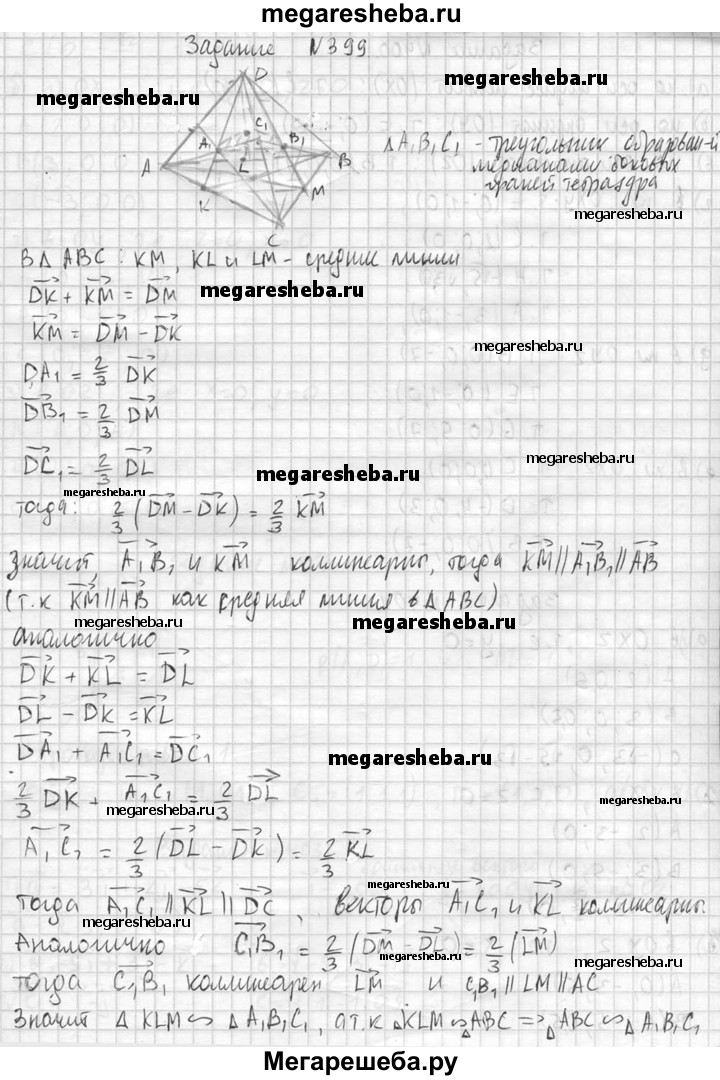 megaresheba.ru
Задание №399
megaresheba.ru
megaresheba.ru
D
C₁
A₁ B₁
A L B
K M
C
Δ A₁B₁C₁ - треугольник образован-й
медианами боковых
граней тетраэдра
megaresheba.ru
В Δ ABC : KM, KL и LM - средние линии
DK + KM = DM
megaresheba.ru
KM = DM - DK
megaresheba.ru
DA₁ = 2/3 DK
DB₁ = 2/3 DM
megaresheba.ru
DC₁ = 2/3 DL
megaresheba.ru
megaresheba.ru
тогда: 2/3 (DM - DK) = 2/3 KM
Значит A₁B₁ и KM коллинеарны, тогда KM || A₁B₁ || AB
(т.к KM || AB как средняя линия в Δ ABC)
megaresheba.ru
megaresheba.ru
аналогично
DK + KL = DL
DL - DK = KL
DA₁ + A₁C₁ = DC₁
megaresheba.ru
2/3 DK + A₁C₁ = 2/3 DL
megaresheba.ru
megaresheba.ru
A₁C₁ = 2/3 (DL - DK) = 2/3 KL
megaresheba.ru
тогда A₁C₁ || KL || DC, векторы A₁C₁ и KL коллинеарны.
megaresheba.ru
Аналогично C₁B₁ = 2/3 (DM - DL) = 2/3 (LM)
megaresheba.ru
megaresheba.ru
тогда C₁B₁ коллинеарен LM и C₁B₁ || LM || AC
Значит Δ KLM ∽ Δ A₁B₁C₁, а т.к Δ KLM ∽ Δ ABC => Δ ABC ∽ Δ A₁B₁C₁
Мегарешеба.ру